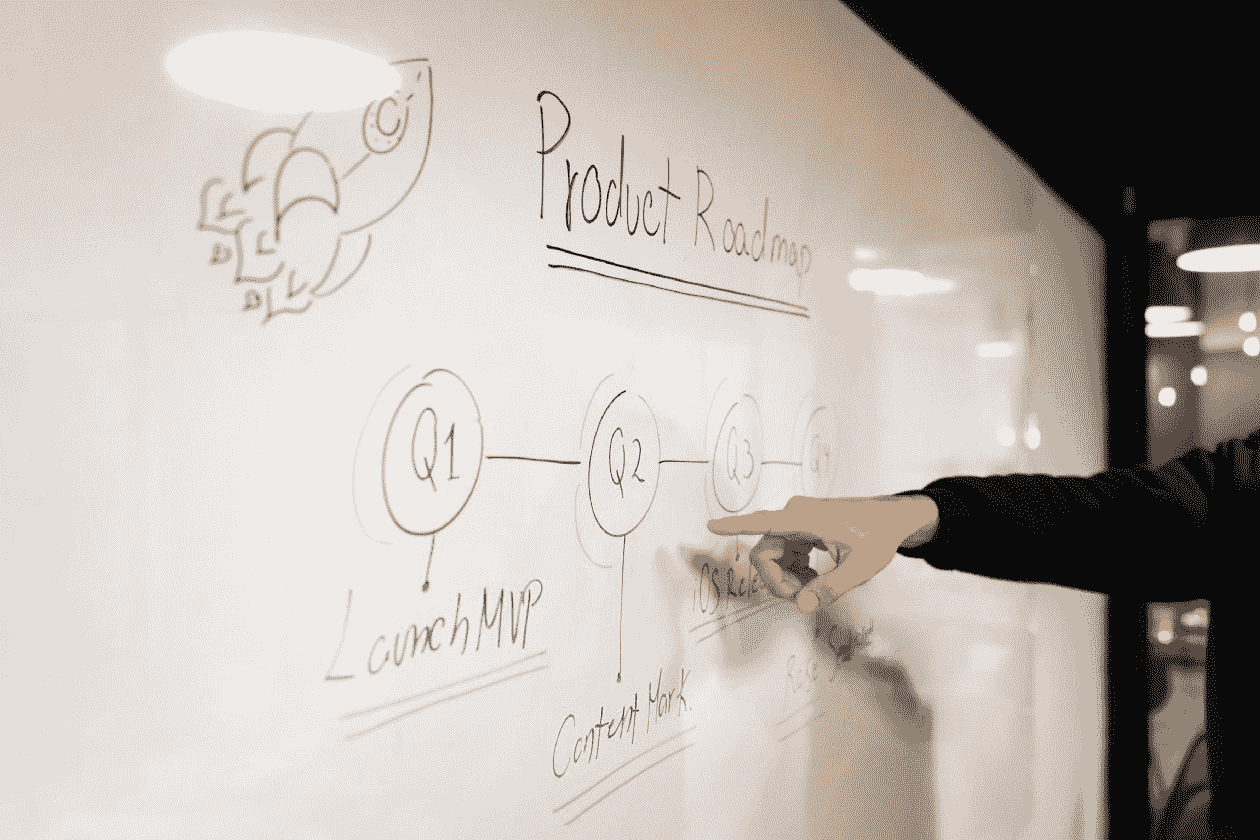 C
Product Roadmap
Q1
Q2
Q3
Q4
Launch MVP
Content Mark.
iOS